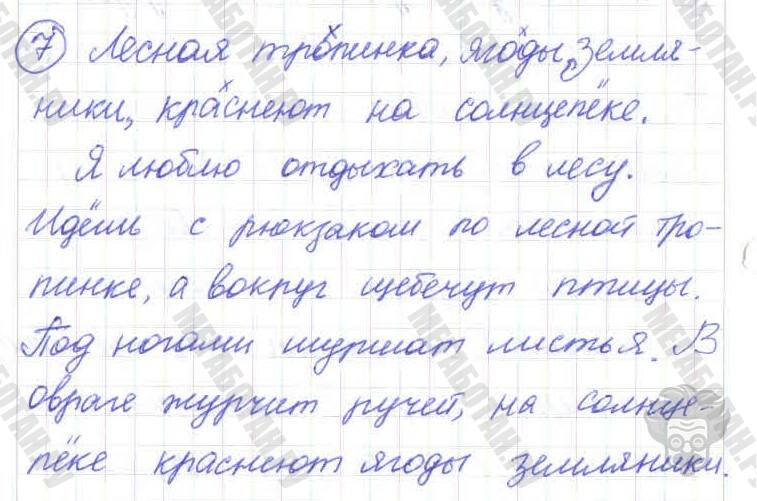 7 Лесная тропинка, ягоды земля-
ники, краснеют на солнцепёке.
Я люблю отдыхать в лесу.
Идёшь с рюкзаком по лесной тро-
пинке, а вокруг щебечут птицы.
Под ногами шуршат листья. В
овраге журчит ручей, на солнце-
пёке краснеют ягоды земляники.
МЕГАБОТАН.РУ